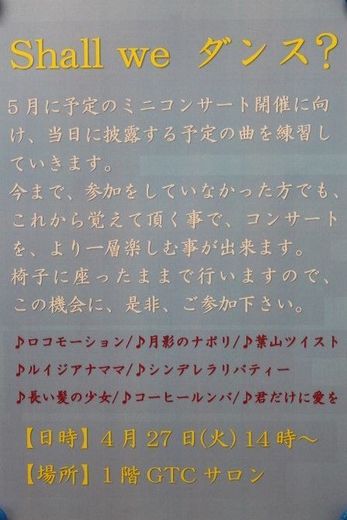 Shall we ダンス?
5月に予定のミニコンサート開催に向
け、当日に披露する予定の曲を練習し
ていきます。
今まで、参加をしていなかった方でも、
これから覚えて頂く事で、コンサート
を、より一層楽しむ事が出来ます。
椅子に座ったままで行いますので、
この機会に、是非、ご参加下さい。
♪ロコモーション/♪月影のナポリ/♪葉山ツイスト
♪ルイジアナママ/♪シンデレラリバティー
♪長い髪の少女/♪コーヒールンバ/♪君だけに愛を
【日時】4月27日(火)14時～
【場所】1階GTCサロン